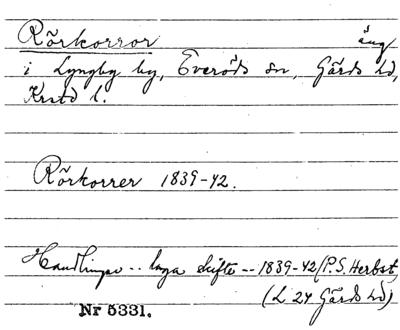 Rörkorror äng
i Lyngby by, Everöds sn, Gärds hd,
Krstd l.
Rörkorrer 1839-42.
Handlingar -- laga skifte -- 1839-42 (P.S. Herbst,
(L 24 Gärds hd)
Nr 5331.